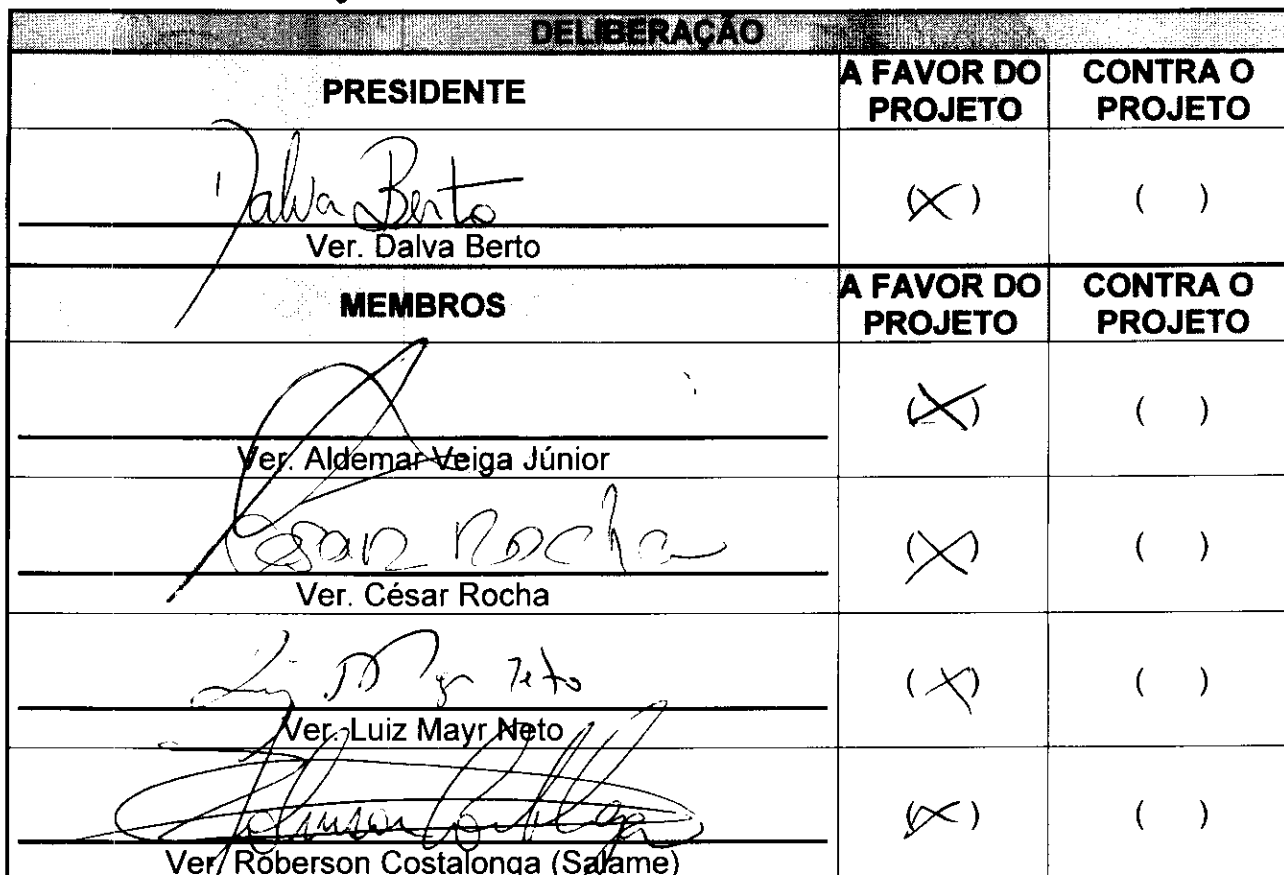 DELIBERAÇÃO
PRESIDENTE
A FAVOR DO PROJETO
CONTRA O PROJETO
Dalva Berto
(X) ( )
Ver. Dalva Berto
MEMBROS
A FAVOR DO PROJETO
CONTRA O PROJETO
(X) ( )
Ver. Aldemar Veiga Júnior
Cesar Rocha
(X) ( )
Ver. César Rocha
(X) ( )
Ver. Luiz Mayr Neto
(X) ( )
Ver. Roberson Costalonga (Salame)